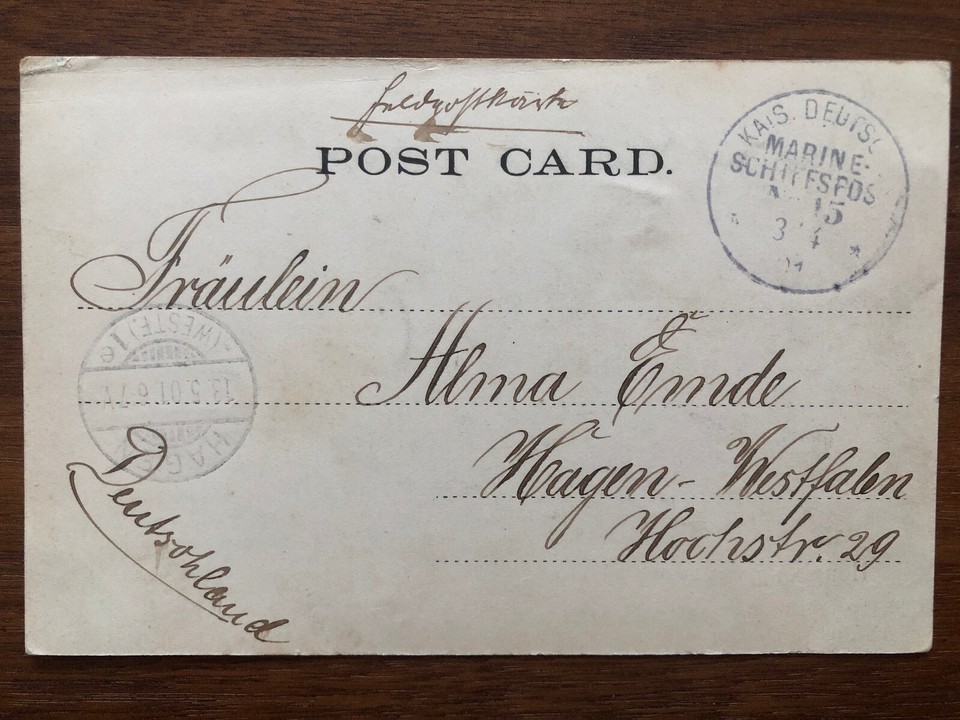 Feldpostkarte
POST CARD.
KAIS. DEUTSC
MARINE-
SCHIFFSPOS
No 15
3/4
01
Fräulein
(WESTF.) 1e
13.5.01.6-7
HAGEN
Alma Emde
Hagen - Westfalen
Hochstr. 29
Deutschland